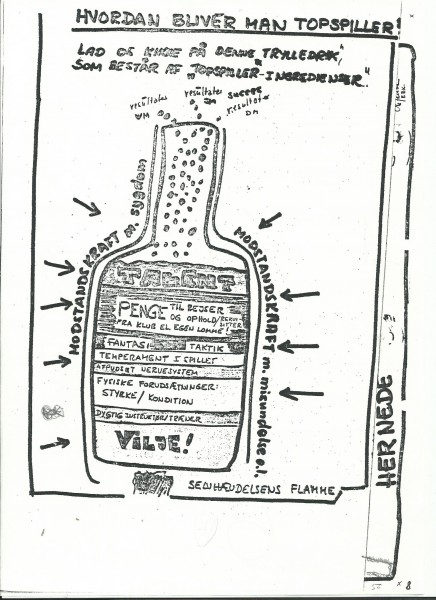 HVORDAN BLIVER MAN TOPSPILLER!
LAD OS KIGGE PÅ DENNE "TRYLLEDRIK",
SOM BESTÅR AF "TOPSPILLER-INGREDIENSER."
resultater
VM
resultater
JM
succes
resultater
DM
MODSTANDSKRAFT m. sygdom
MODSTANDSKRAFT m. misundelse o.l.
TALENT
PENGE TIL REJSER
OG OPHOLD/
FRA KLUB EL. EGEN LOMME!
FANTASI TAKTIK
TEMPERAMENT I SPILLET
AFPUDSET NERVESYSTEM
FYSISKE FORUDSÆTNINGER:
STYRKE/KONDITION
DYGTIG INSTRUKTØR/TRÆNER
VILJE!
SELVHÆNDELSENS FLAMME
HERNEDE
x 8